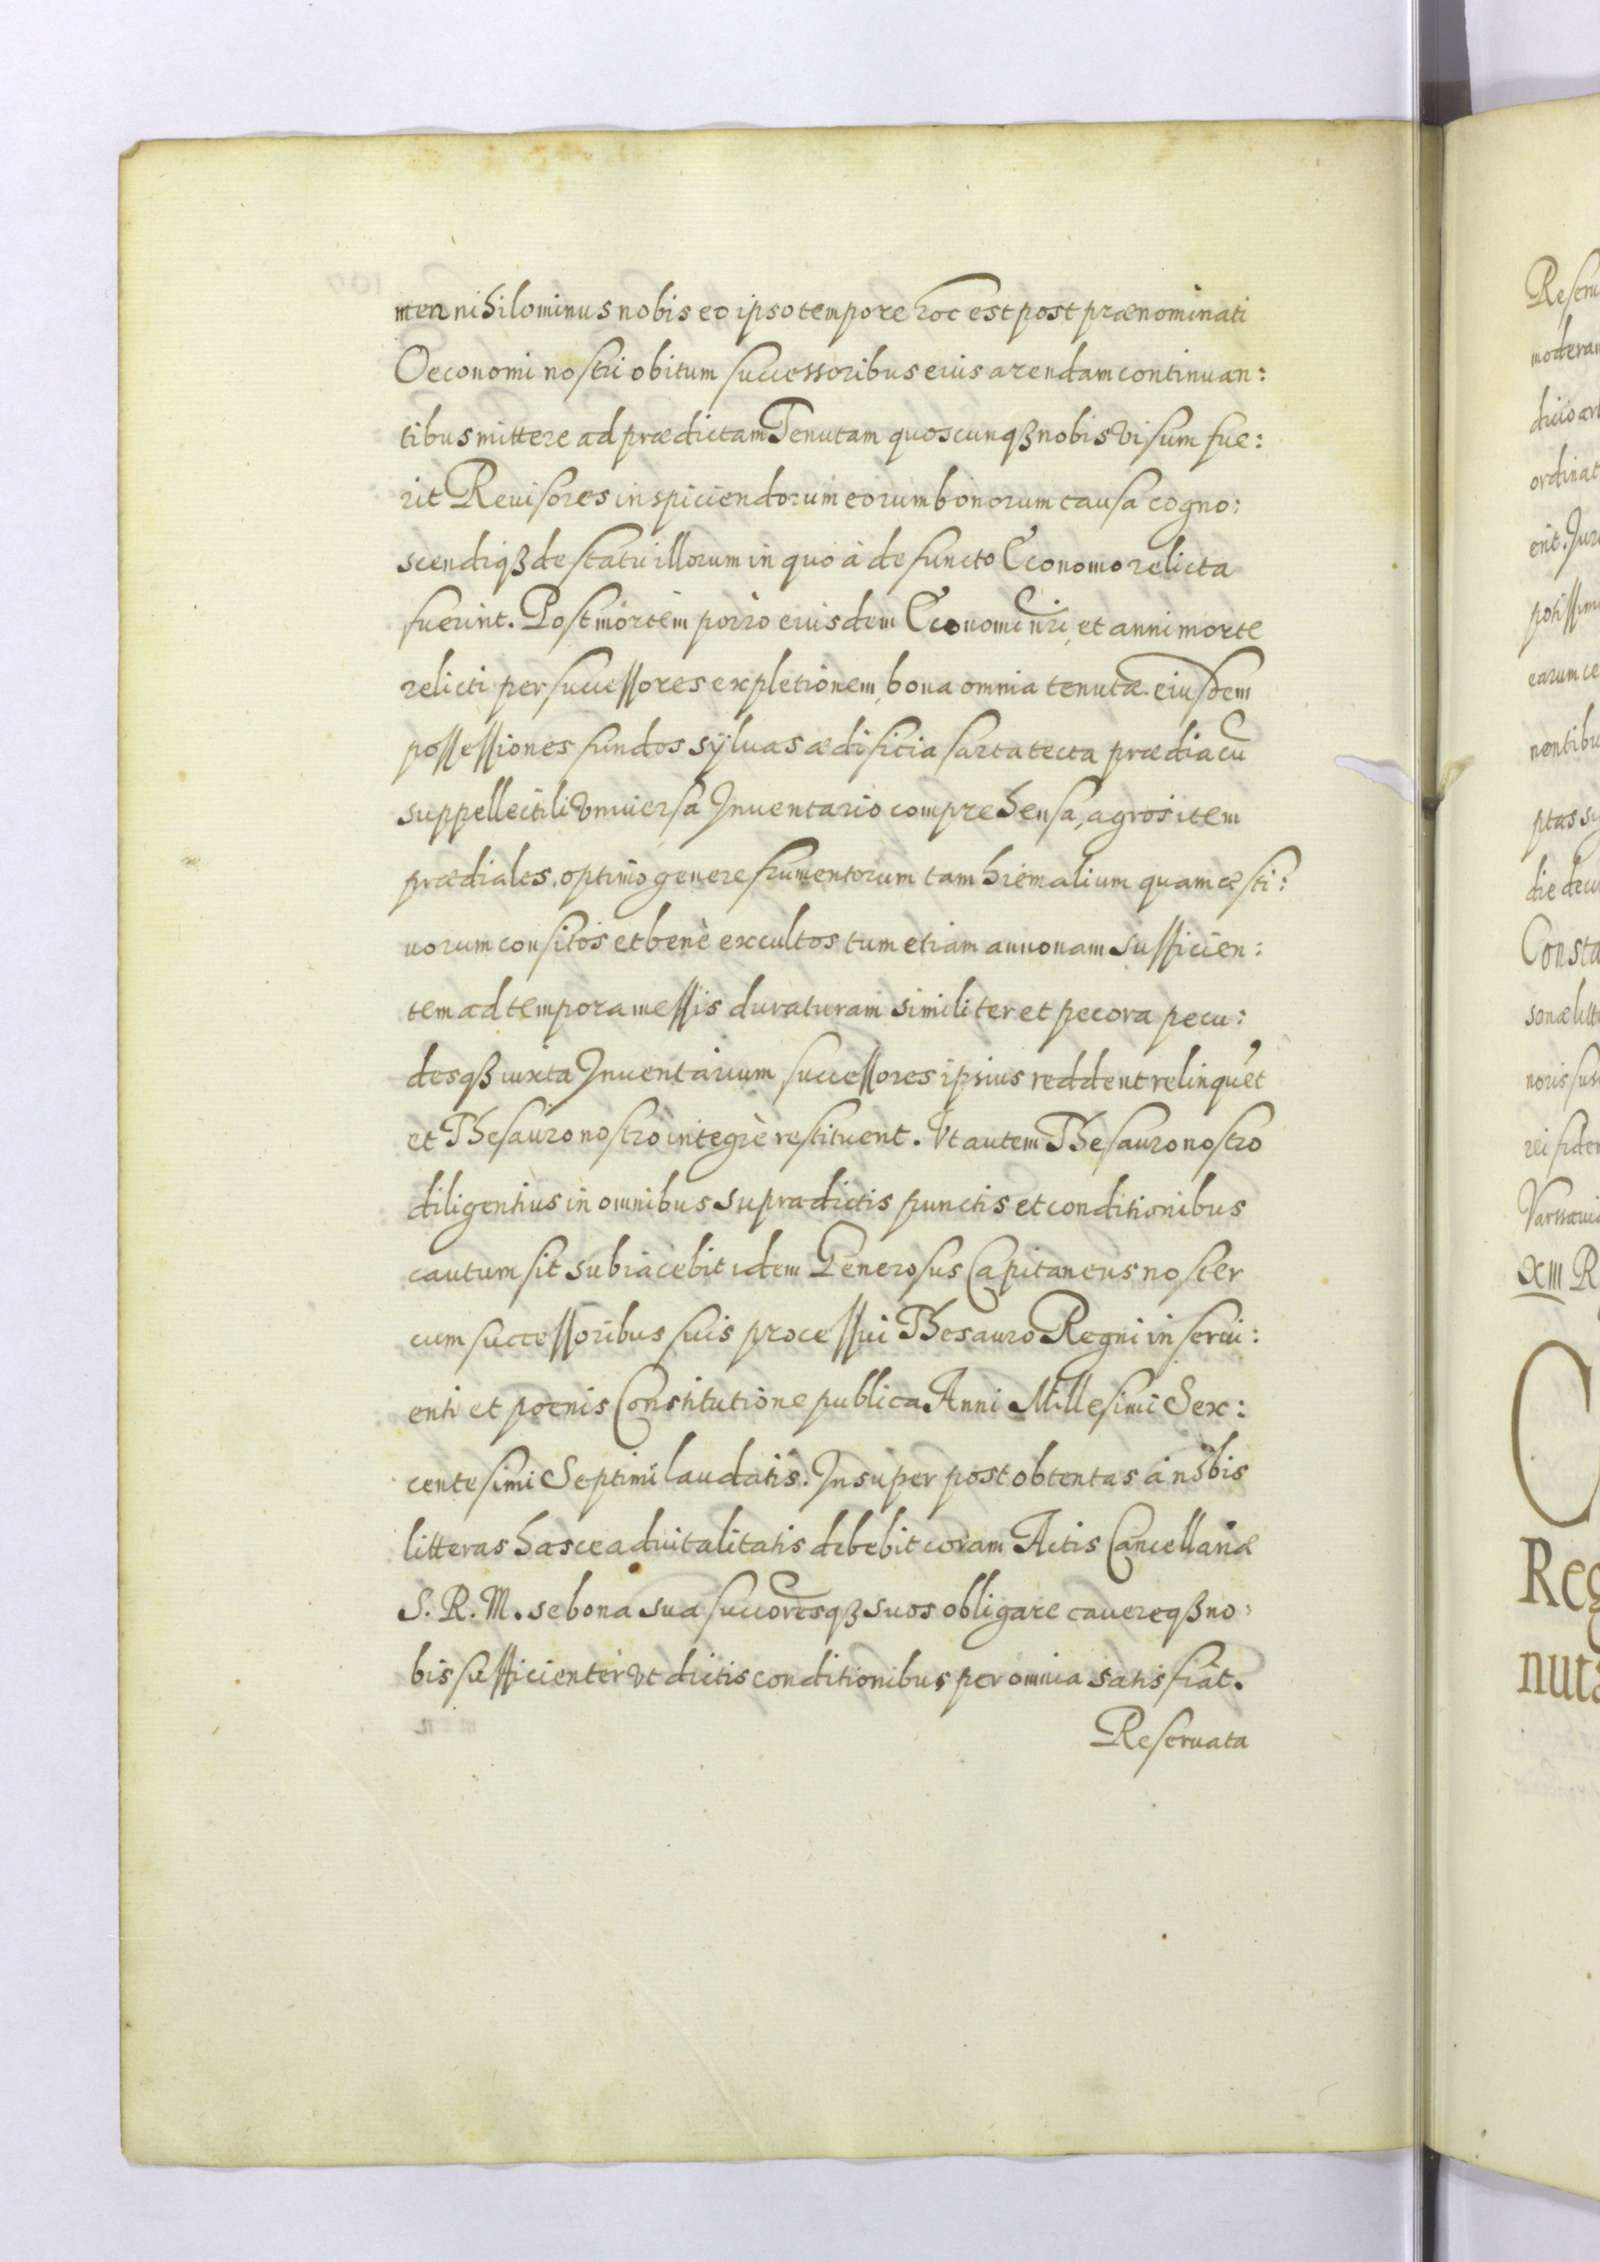 men nihilominus nobis eo ipso tempore hoc est post prænominati
Oeconomi nostri obitum successoribus eius arendam continuan:
tibus mittere ad prædictam Tenutam quoscunqꝫ nobis visum fue:
rit Reuisores inspiciendorum eorum bonorum causa cogno:
scendiqꝫ de statu illorum in quo à defuncto Œconomo relicta
fuerint. Post mortem porro eiusdem Œconomi nri, et anni morte
relicti per successores expletionem, bona omnia tenutæ eiusdem
possessiones fundos sÿluas ædificia sarta tecta prædia cũ
suppellectili vniuersa Inuentario comprehensa, agros item
prædiales optimo genere frumentorum tam hiemalium quam æsti:
uorum consitos et benè excultos tum etiam annonam sufficien:
tem ad tempora messis duraturam similiter et pecora pecu:
desqꝫ iuxta Inuentarium successores ipsius reddent relinquẽt
et Thesauro nostro integrè restituent. Vt autem Thesauro nostro
diligentius in omnibus supradictis punctis et conditionibus
cautum sit subiacebit idem Generosus Capitaneus noster
cum successoribus suis processui Thesauro Regni inserui:
enti et poenis Constitutione publica Anni Millesimi Sex:
centesimi Septimi laudatis. Insuper post obtentas à nobis
litteras hasce aduitalitatis debebit coram Actis Cancellariæ
S. R. M. se bona sua succoresqꝫ suos obligare cauereqꝫ no:
bis sufficienter vt dictis conditionibus per omnia satisfiat.
Reseruata
Reseru
moderan
ordinat
erit. Jur
potissim
earum ce
nentibu
ptas sig
die decu
Consta
sonæ litt
noris sus
rei fidem
Varssauiæ
XIII R
C
Reg
nuta